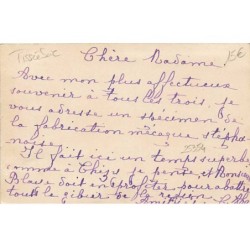 Chère Madame
Avec mon plus affectueux
souvenir à tous les trois, je
vous adresse un spécimen de
la fabrication mécanique stépha-
noise.
Il fait ici un temps superbe
comme à Chizy je pense, et Monsieur
Blaise doit en profiter pour abattre
tout le gibier de la région